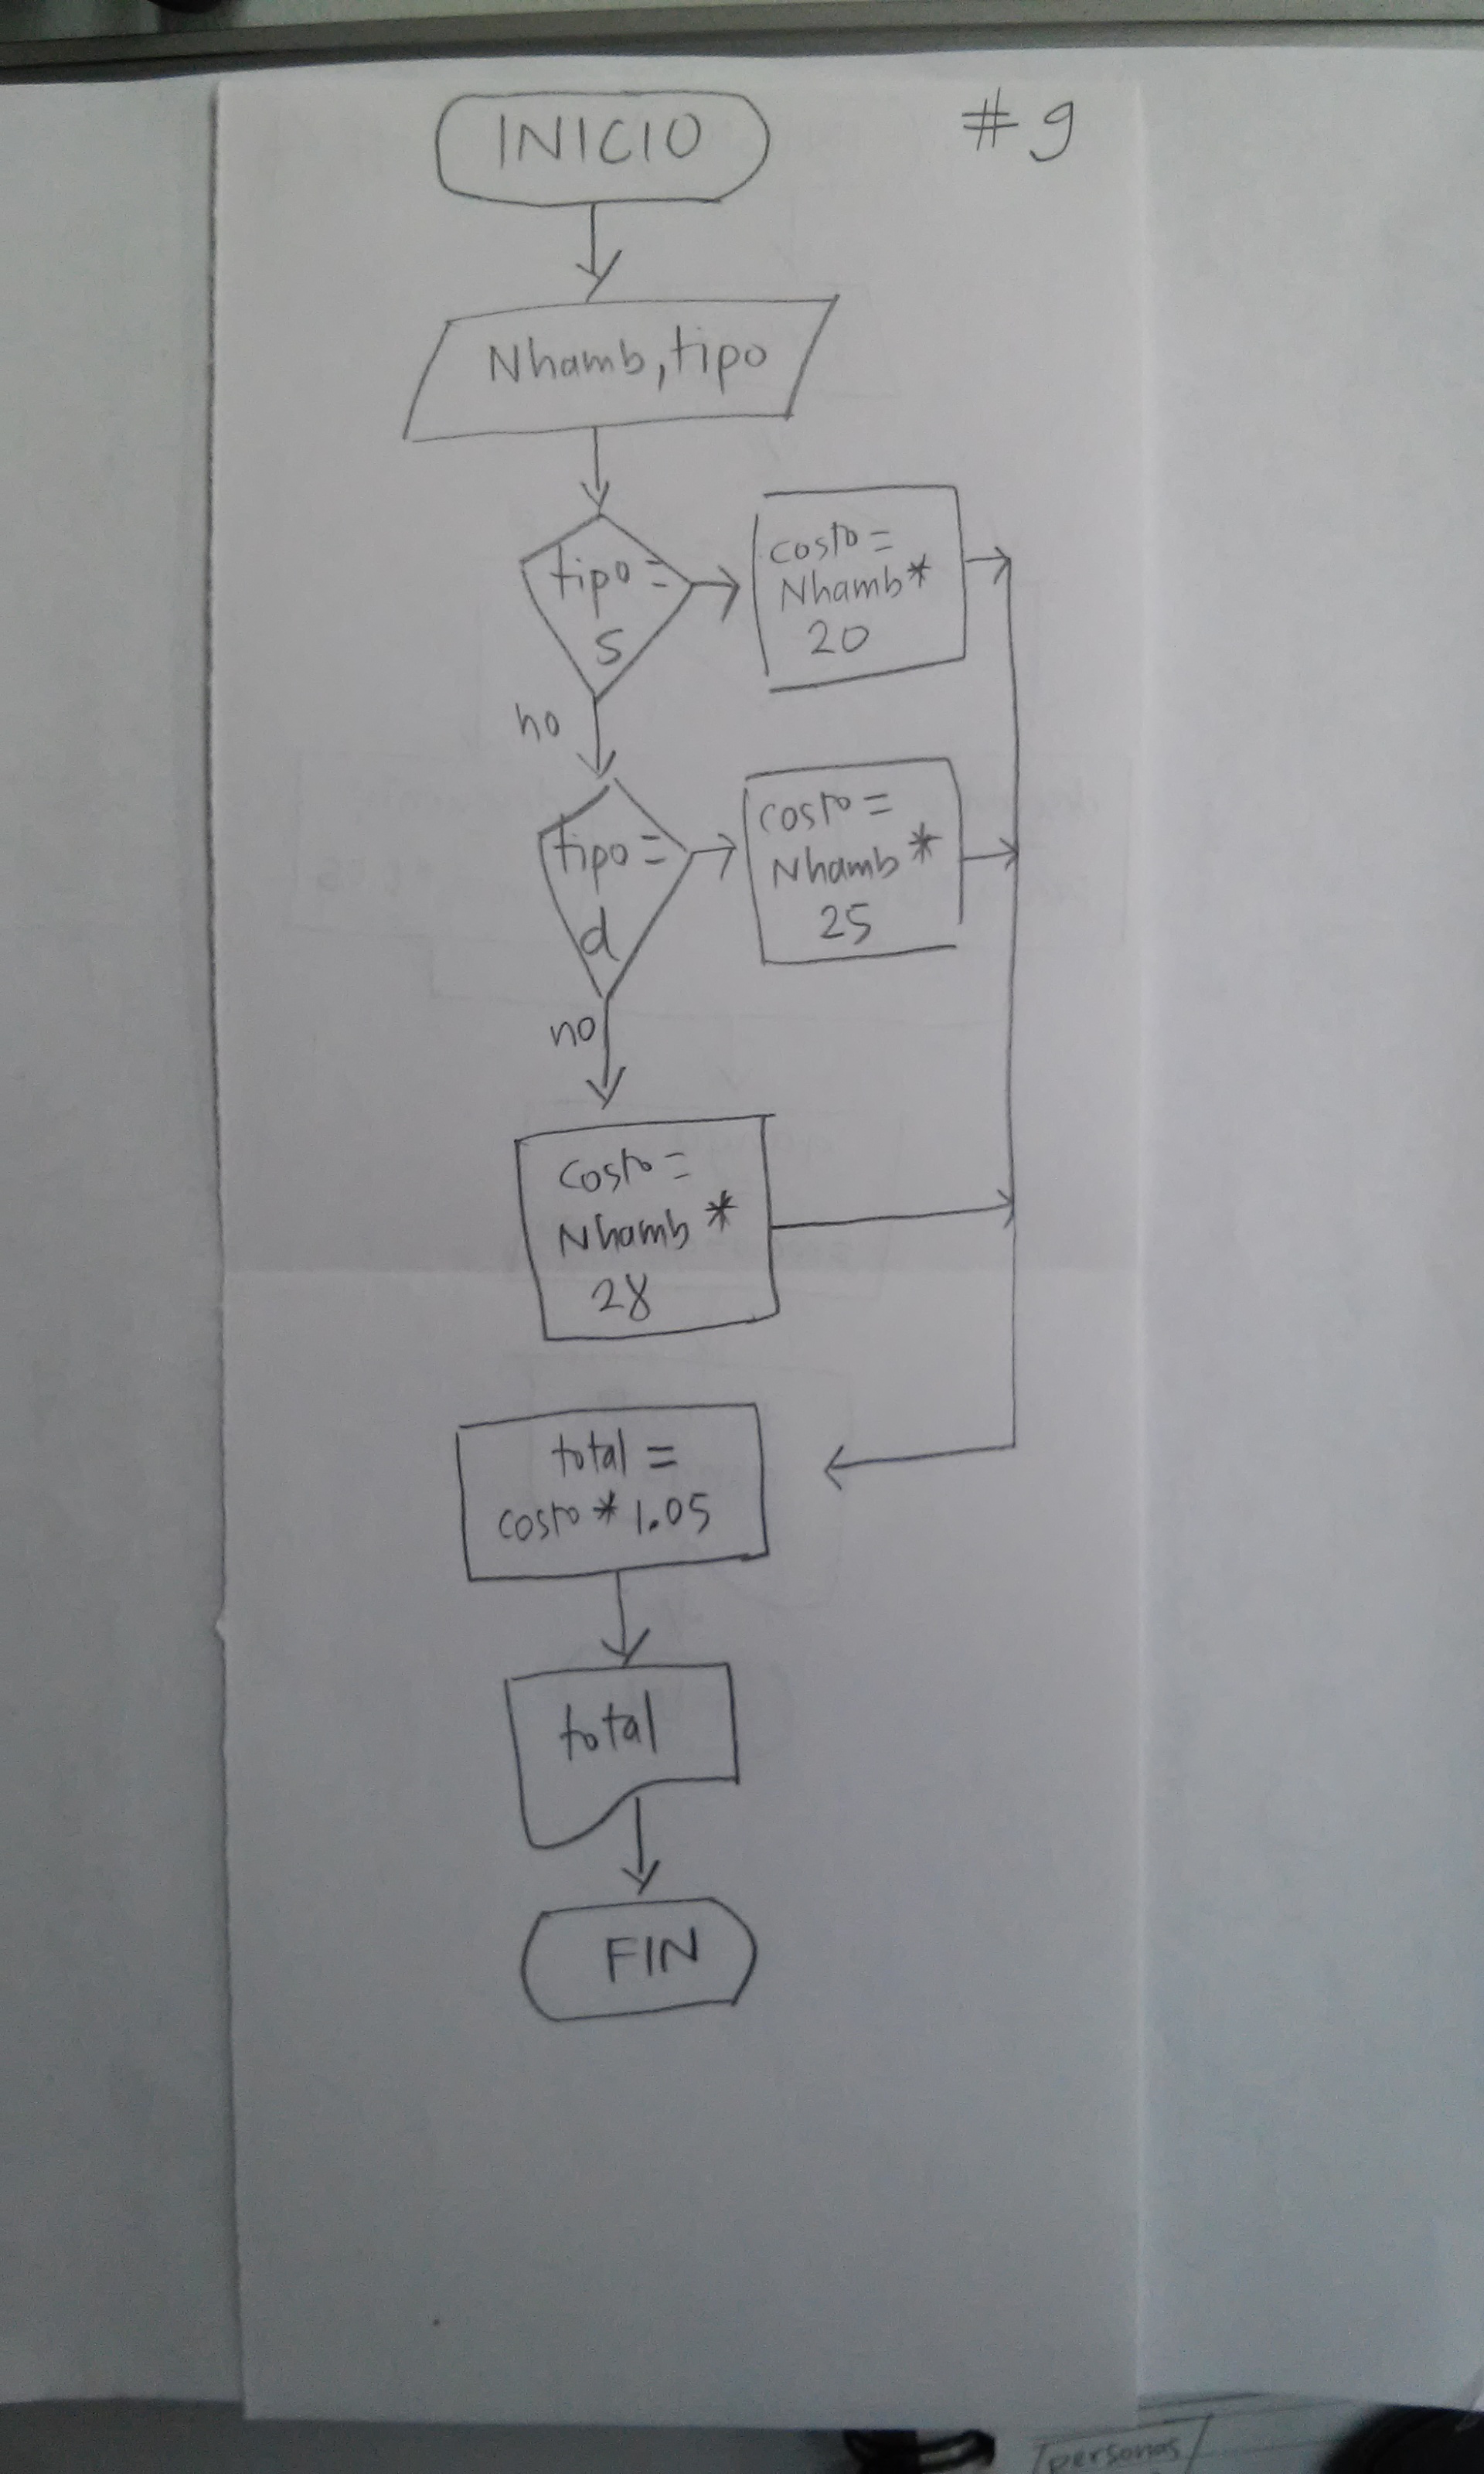 INICIO
#9
Nhamb, tipo
tipo =
s
costo =
Nhamb *
20
no
tipo =
d
costo =
Nhamb *
25
no
costo =
Nhamb *
28
total =
costo * 1.05
total
FIN
personas